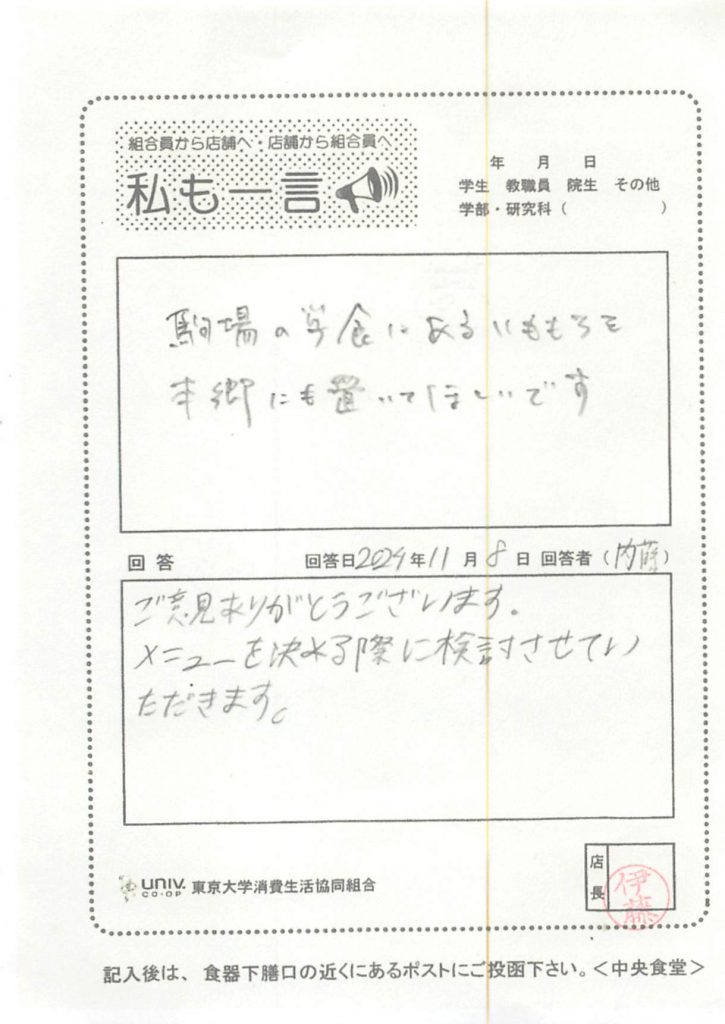 組合員から店舗へ・店舗から組合員へ
私も一言
年 月 日
学生 教職員 院生 その他
学部・研究科（ ）
駒場の学食にあるいももちを
本郷にも置いてほしいです
回答 回答日2024年11月8日 回答者（内藤）
ご意見ありがとうございます。
メニューを決める際に検討させてい
ただきます。
UNIV. CO-OP 東京大学消費生活協同組合
店長 伊藤
記入後は、食器下膳口の近くにあるポストにご投函下さい。＜中央食堂＞